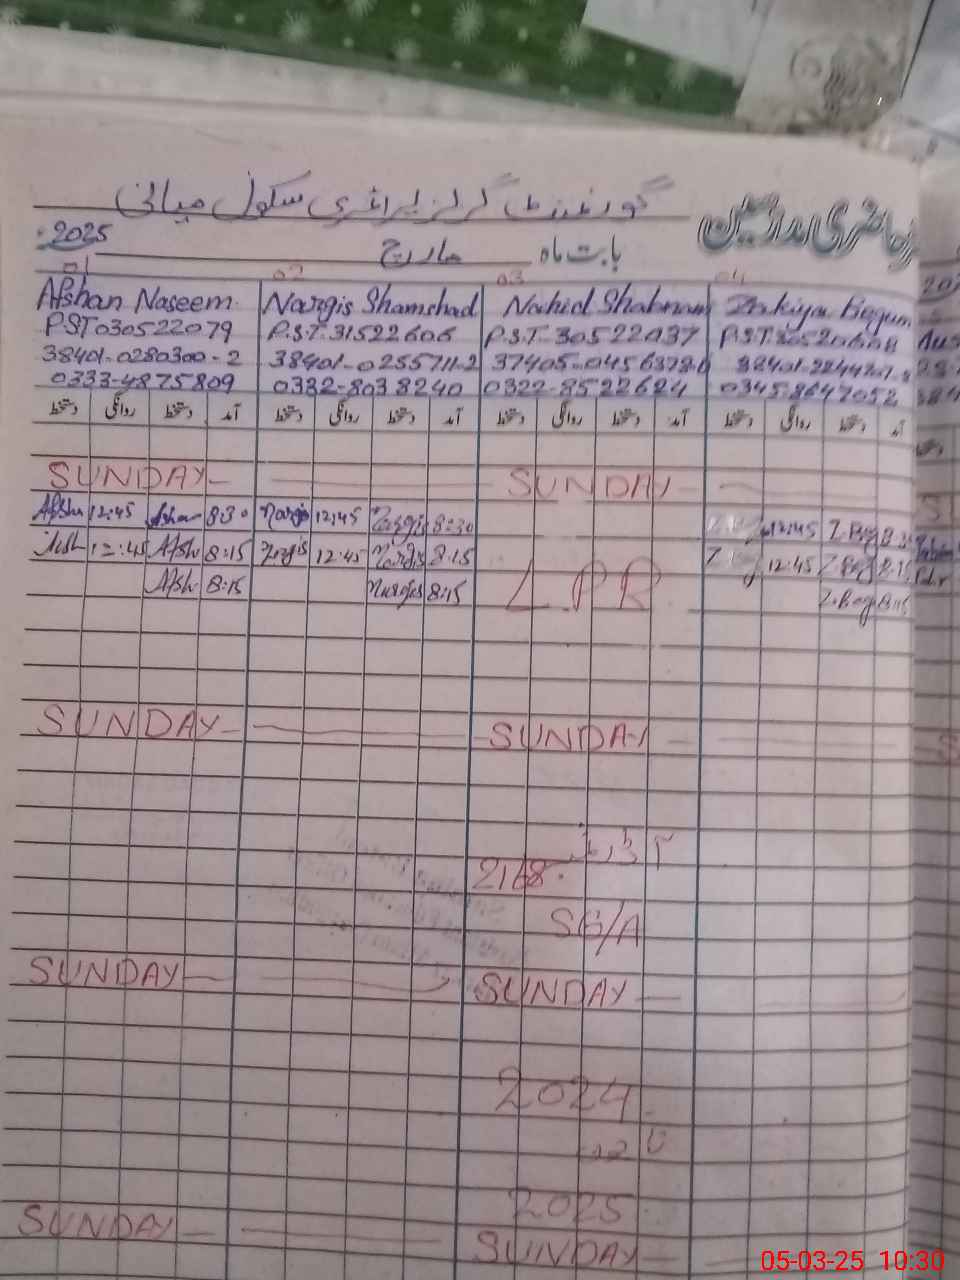 گورنمنٹ گرلز پرائمری سکول میانی
حاضری مدرسین
2025 مارچ بابت ماہ
01 02 03 04
Afshan Naseem. Nargis Shamshad Nahid Shabnam Zakiya Begum
PST03052 2079 P.S.T. 31522606 P.S.T. 30522037
38401-0280300-2 38401-0255711-2
0333-4875809 0332-8038240 0322-8522624 0345-8647052
دستخط روانگی دستخط آمد دستخط روانگی دستخط آمد دستخط روانگی دستخط آمد دستخط روانگی دستخط آمد
SUNDAY SUNDAY
Afshn 12:45 Afshan 8:30 Nargis 12:45 Nargis 8:30 12:45 Z.Beg
Afsh 12:45 Afsh 8:15 Nargis 12:45 Nargis 8:15 12:45 Z.Beg 8:15
Afsh 8:15 Nargis 8:15 L.P.R Z.Beg 8:15
SUNDAY SUNDAY
آرڈر
2168.
SG/A
SUNDAY SUNDAY
2024
تا
2025
SUNDAY SUNDAY
05-03-25 10:30